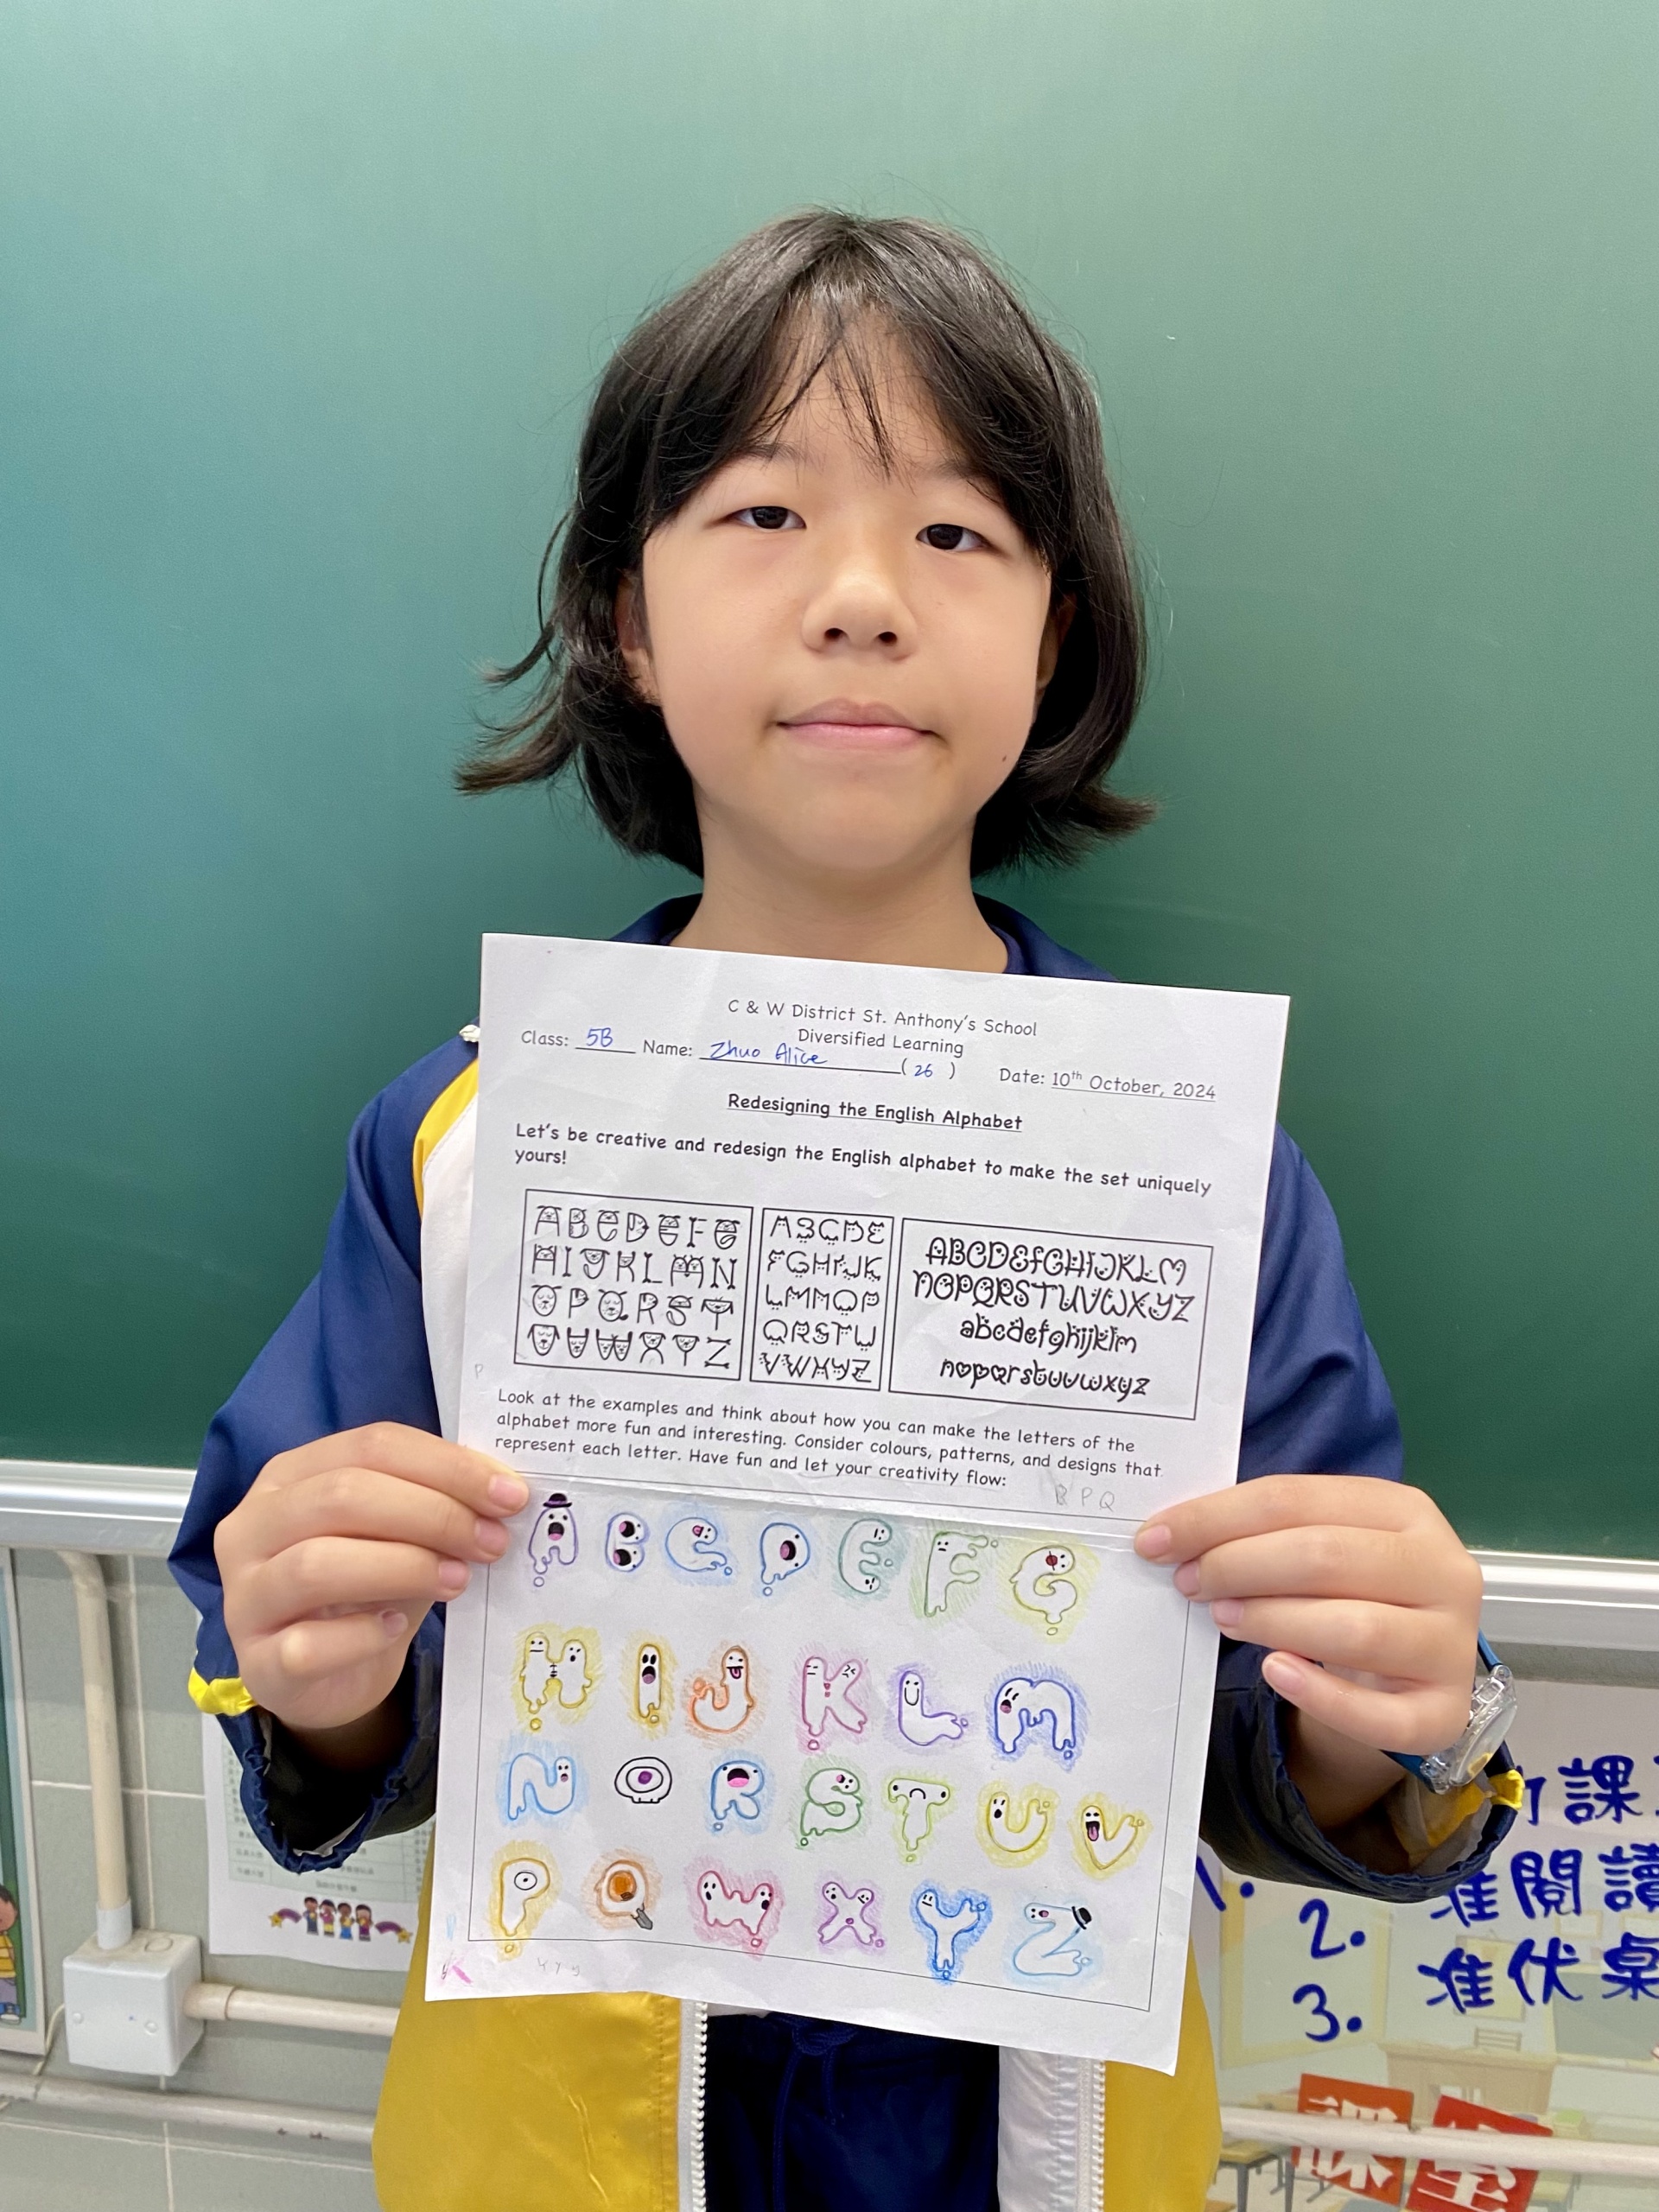 C & W District St. Anthony's School
Diversified Learning
Class: 5B Name: Zhuo Alice (26) Date: 10th October, 2024
Redesigning the English Alphabet
Let's be creative and redesign the English alphabet to make the set uniquely
yours!
ABCDEFG
HIJKLMN
OPQRST
UVWXYZ
ABCDE
FGHIJK
LMNOP
QRSTU
VWXYZ
ABCDEfGHIJKLM
NOPQRSTUVWXYZ
abcdefghijklm
nopqrstuvwxyz
Look at the examples and think about how you can make the letters of the
alphabet more fun and interesting. Consider colours, patterns, and designs that
represent each letter. Have fun and let your creativity flow:
R P Q
A B C D E F G
H I J K L M
N O R S T U V
P Q W X Y Z
課
1.
2. 准閱讀
3. 准伏桌
課室